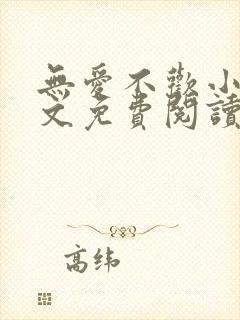 無愛不歡小
文免費閱讀
高纬